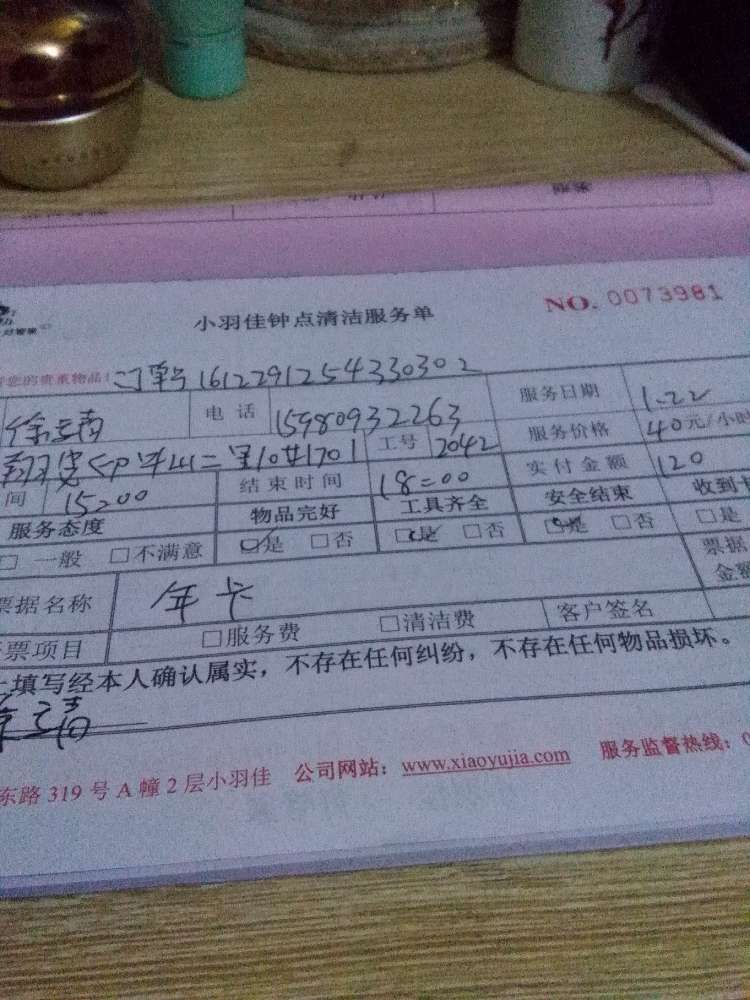 小羽佳钟点清洁服务单 NO. 0073981
您的贵重物品! 订单号161229125433030 2
徐 电话 15980932263 服务日期 1.22
二里10#1701 工号 2042 服务价格 40元/小时
间 15:00 结束时间 18:00 实付金额 120
服务态度 物品完好 工具齐全 安全结束 收到
□ 一般 □不满意 □是 □否 □是 □否 □是 □否 □是
票据名称 年卡 票据
金额
票项目 □服务费 □清洁费 客户签名
填写经本人确认属实，不存在任何纠纷，不存在任何物品损坏。
东路 319 号 A 幢 2 层小羽佳 公司网站：www.xiaoyujia.com 服务监督热线：0